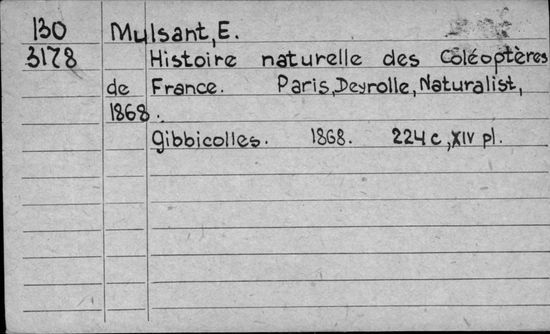 130 Mulsant, E.
3178 Histoire naturelle des Coléoptères
de France. Paris, Deyrolle, Naturalist,
1868.
Gibbicolles. 1868. 224 c, XIV pl.